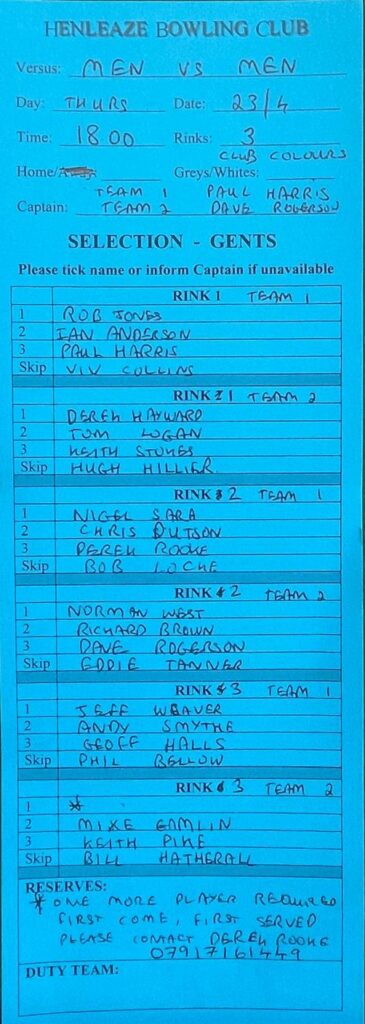 HENLEAZE BOWLING CLUB
Versus: MEN VS MEN
Day: THURS Date: 23/4
Time: 18 00 Rinks: 3
CLUB COLOURS
Home/ Greys/Whites:
TEAM 1 PAUL HARRIS
Captain: TEAM 2 DAVE ROGERSON
SELECTION - GENTS
Please tick name or inform Captain if unavailable
RINK 1 TEAM 1
1 ROB JONES
2 IAN ANDERSON
3 PAUL HARRIS
Skip VIV COLLINS
RINK 2 1 TEAM 2
1 DEREK HAYWARD
2 TOM LOGAN
3 KEITH STOKES
Skip HUGH HILLIER
RINK 3 2 TEAM 1
1 NIGEL SARA
2 CHRIS DUTSON
3 DEREK ROOKE
Skip BOB LOCKE
RINK 4 2 TEAM 2
1 NORMAN WEST
2 RICHARD BROWN
3 DAVE ROGERSON
Skip EDDIE TANNER
RINK 5 3 TEAM 1
1 JEFF WEAVER
2 ANDY SMYTHE
3 GEOFF HALLS
Skip PHIL BELLOW
RINK 6 3 TEAM 2
1 *
2 MIKE GAMLIN
3 KEITH PIKE
Skip BILL HATHERALL
RESERVES:
* ONE MORE PLAYER REQUIRED
FIRST COME, FIRST SERVED
PLEASE CONTACT DEREK ROOKE
07917161449
DUTY TEAM: